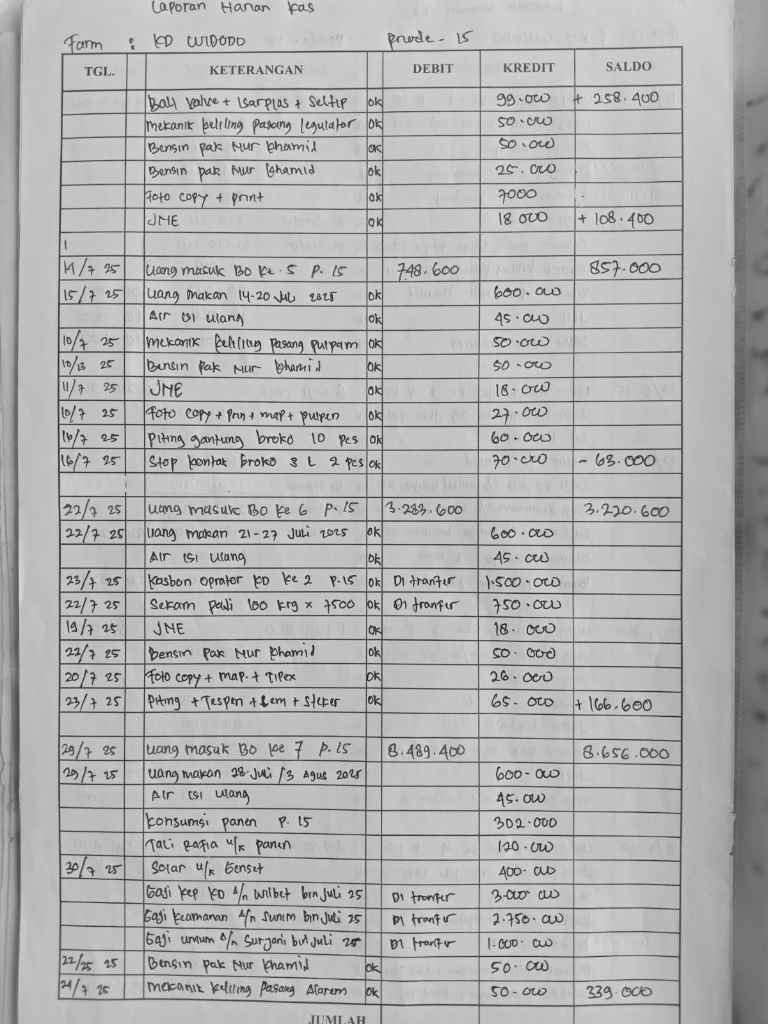 Laporan Harian Kas
Farm : KD WIDODO Priode - 15
TGL. KETERANGAN DEBIT KREDIT SALDO
Ball valve + Isarplas + Seltip ok 99.000 + 258.400
Mekanik keliling pasang regulator ok 50.000
Bensin pak Nur khamid ok 50.000
Bensin pak Nur khamid ok 25.000
Foto copy + print ok 7000
JNE ok 18 000 + 108.400
1
14/7 25 Uang masuk BO ke - 5 P. 15 748.600 857.000
15/7 25 Uang makan 14-20 Jul 2025 ok 600.000
Air isi ulang ok 45.000
10/7 25 Mekanik keliling pasang pulpam ok 50.000
10/13 25 Bensin Pak Nur khamid ok 50.000
11/7 25 JNE ok 18.000
10/7 25 Foto copy + prin + map + pulpen ok 27.000
16/7 25 Piting gantung broko 10 pcs ok 60.000
16/7 25 Stop kontak broko 3 L 2 pcs ok 70.000 - 63.000
22/7 25 Uang masuk BO ke 6 P. 15 3.283.600 3.220.600
22/7 25 Uang makan 21-27 Juli 2025 ok 600.000
Air isi ulang ok 45.000
23/7 25 Kasbon oprator KD ke 2 P.15 ok Di tranfer 1.500.000
22/7 25 Sekam padi 100 krg x 7500 ok Di tranfer 750.000
19/7 25 JNE ok 18.000
22/7 25 Bensin Pak Nur khamid ok 50.000
20/7 25 Foto copy + map + Tipex ok 26.000
23/7 25 Piting + Tespen + Lem + Steker ok 65.000 + 166.600
29/7 25 Uang masuk BO ke 7 P.15 8.489.400 8.656.000
29/7 25 Uang makan 28 Juli / 3 Agus 2025 600-000
Air isi ulang 45.000
Konsumsi panen P. 15 302.000
Tali rafia u/k panen 120.000
30/7 25 Solar u/k Genset 400-000
Gaji kep KD A/n Wilbet bln Juli 25 Di tranfer 3.000 000
Gaji keamanan A/n Sunim bln Juli 25 Di tranfer 2.750.000
Gaji umum A/n Suryani bln Juli 25 Di tranfer 1.000.000
22/25 25 Bensin pak Nur khamid ok 50.000
24/7 25 Mekanik keliling Pasang Alarem ok 50-000 339.000
JUMLAH